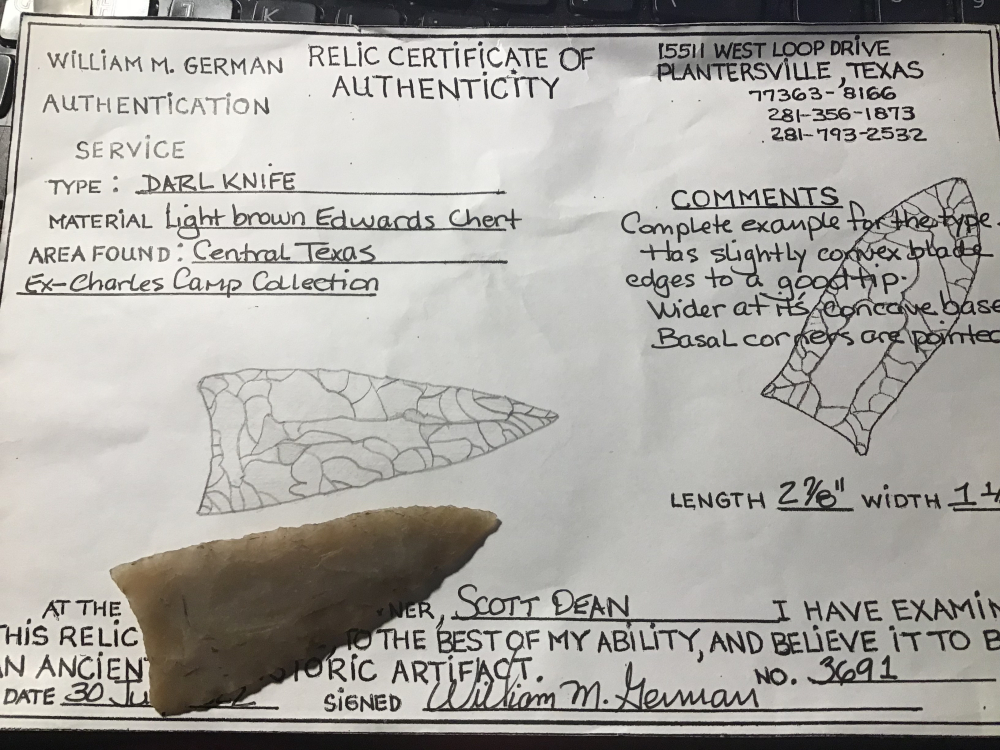 WILLIAM M. GERMAN
AUTHENTICATION
SERVICE
RELIC CERTIFICATE OF
AUTHENTICITY
15511 WEST LOOP DRIVE
PLANTERSVILLE, TEXAS
77363-8166
281-356-1873
281-793-2532
TYPE: DARL KNIFE
MATERIAL Light brown Edwards Chert
AREA FOUND: Central Texas
Ex-Charles Camp Collection
COMMENTS
Complete example for the type.
Has slightly convex blade
edges to a good tip.
Wider at its concave base
Basal corners are pointed
LENGTH 2 7/8" WIDTH 1
AT THE NER, SCOTT DEAN I HAVE EXAMIN
THIS RELIC TO THE BEST OF MY ABILITY, AND BELIEVE IT TO B
AN ANCIENT TORIC ARTIFACT.
NO. 3691
DATE 30 Ju
SIGNED William M. German